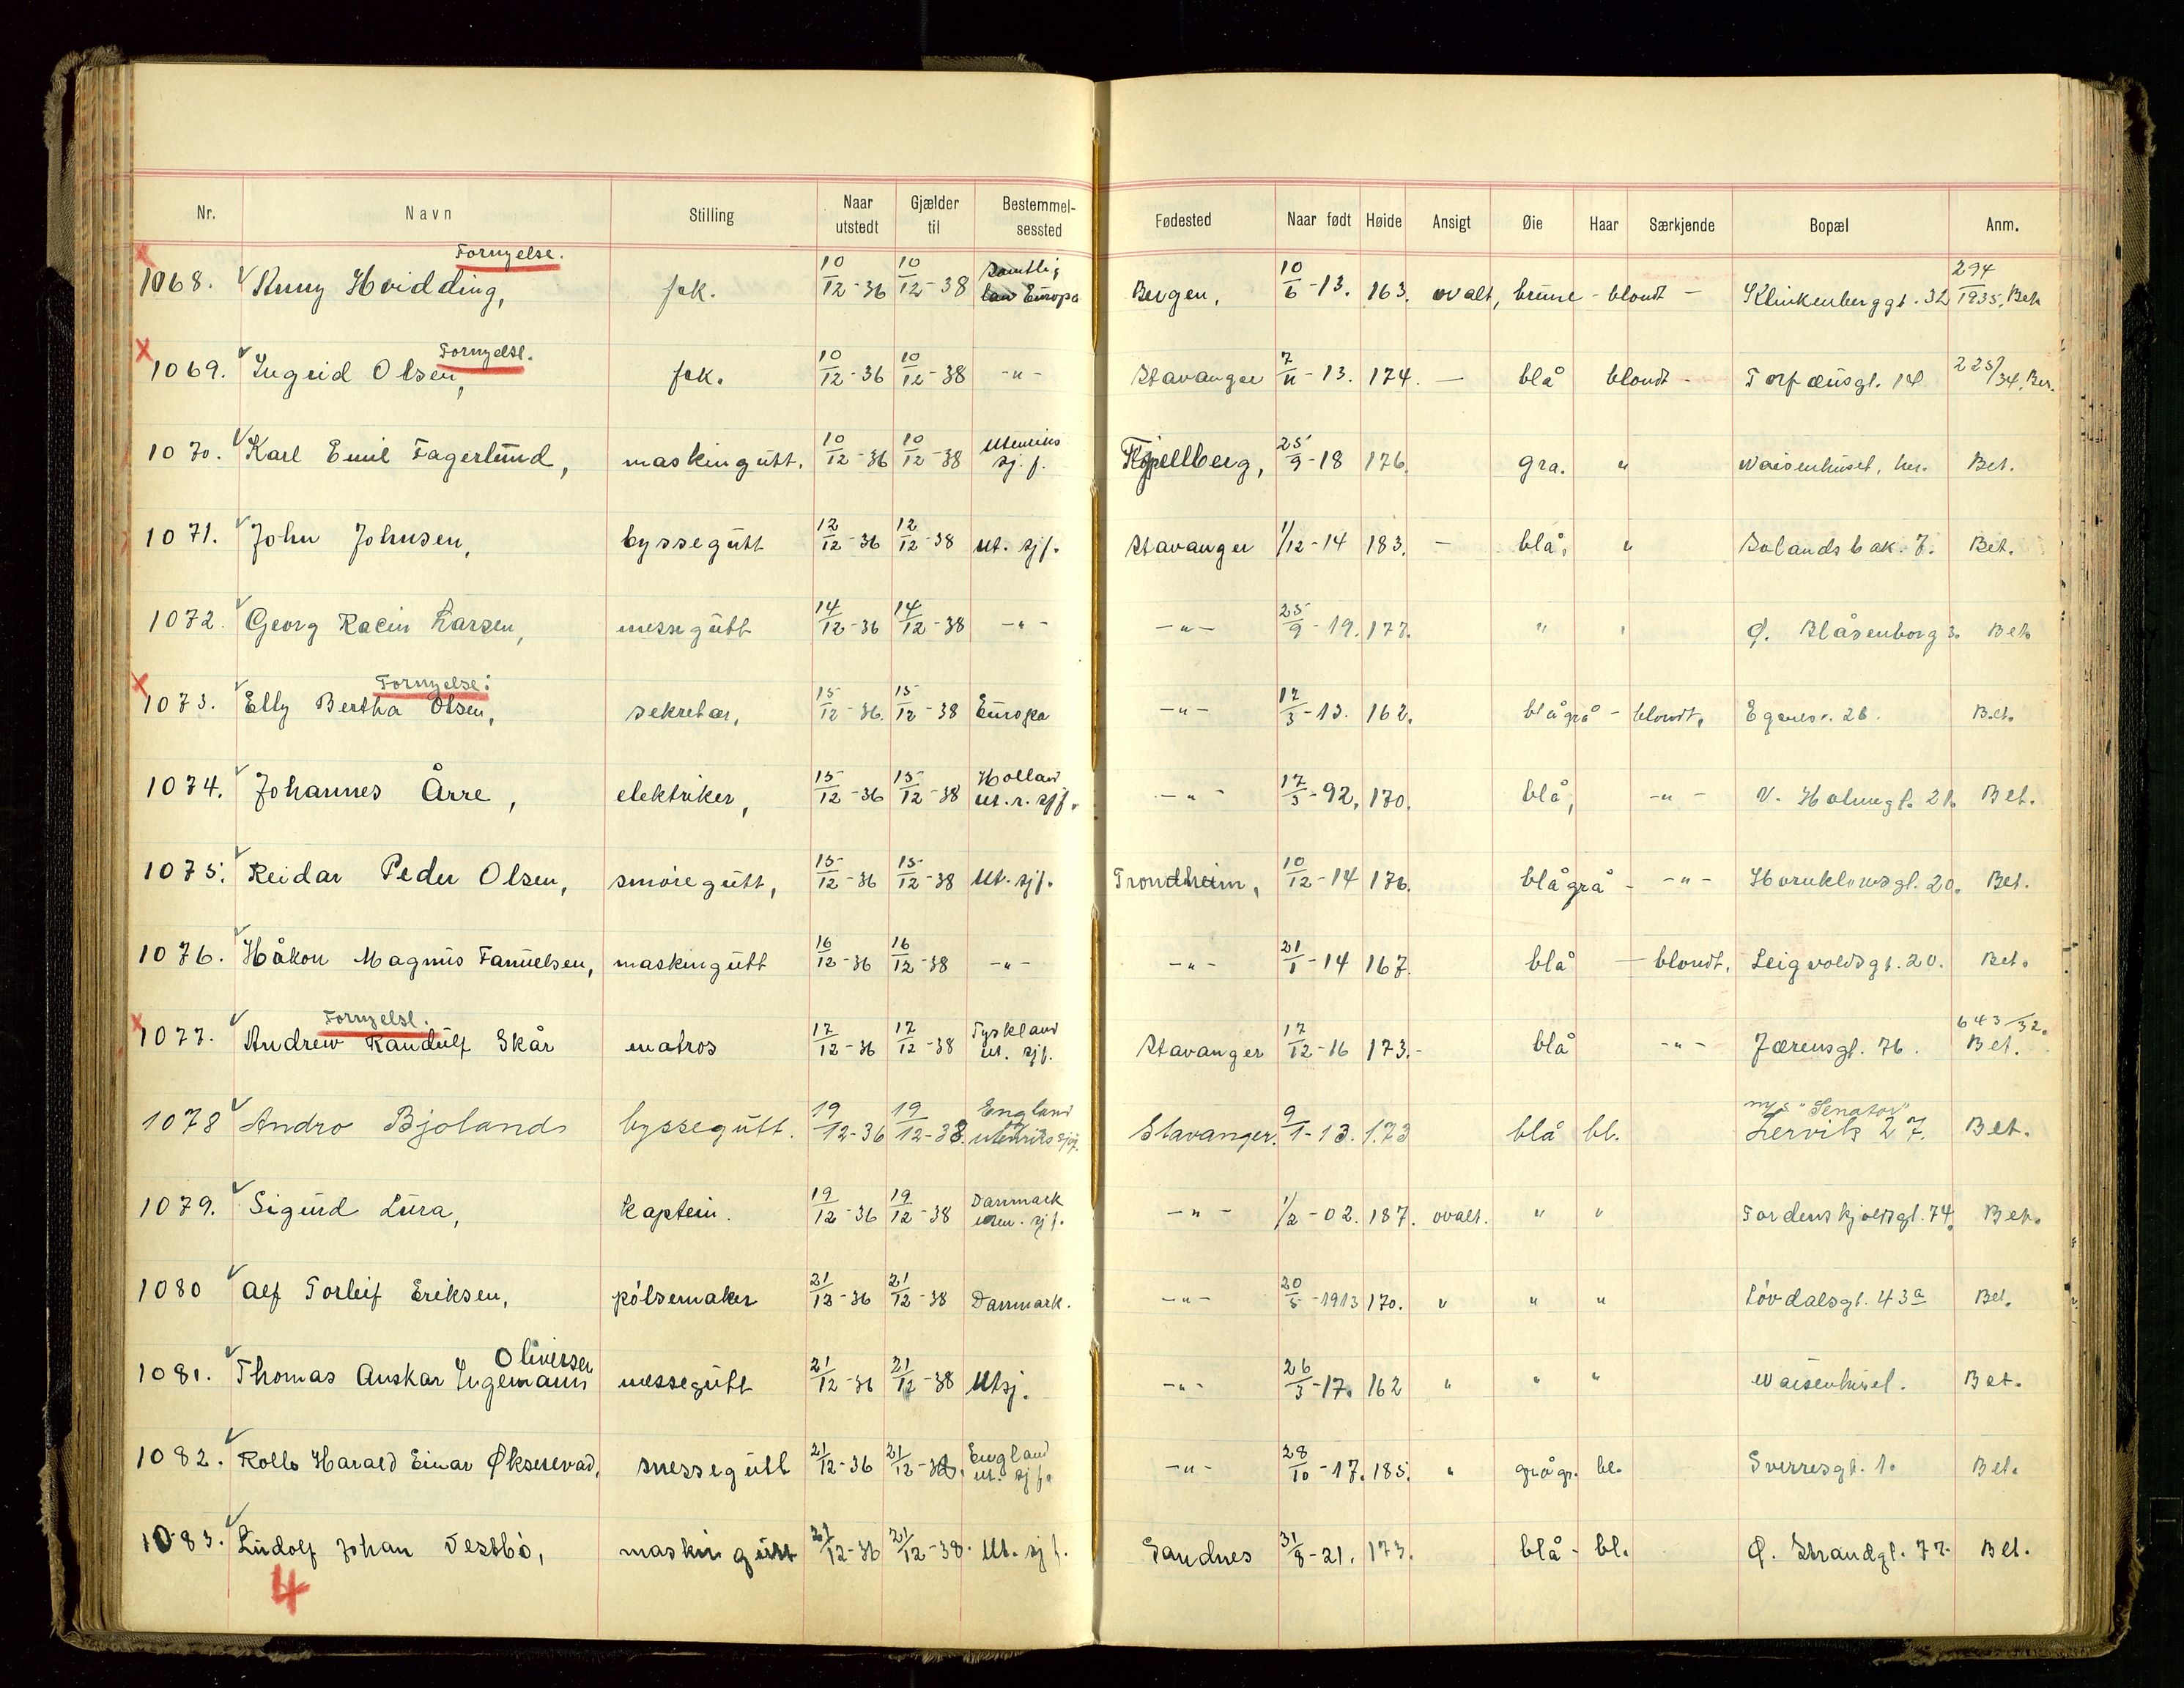 Nr. Navn Stilling Naar utstedt Gjælder til Bestemmelsessted Fødested Naar født Høide Ansigt Øie Haar Særkjende Bopæl Anm.
Fornyelse.
1068. Hvidding, frk. 10/12-36 10/12-38 Samtlig land Europa Bergen, 10/6-13. 163. ovalt, brune - blondt - Klinkenberggt. 32 294/1935. Bet.
Fornyelse.
1069. Ingrid Olsen, frk. 10/12-36 10/12-38 -"- Stavanger 7/11-13. 174. - blå blondt - Torfæusgt. 14 225/34. Bet.
1070. Karl Emil Fagerlund, maskingutt. 10/12-36 10/12-38 Utenriks sj.f. 25/9-18 176. grå. " Waisenhuset, her. Bet.
1071. John Johnsen, byssegutt 12/12-36 12/12-38 Ut. sjf. Stavanger 1/12-14 183. - blå, " bak. 7. Bet.
1072. Georg Larsen, messegutt 14/12-36 14/12-38 -"- -"- 25/9-19. 177. " " Ø. Blåsenborg 3. Bet.
Fornyelse:
1073. Elly Bertha Olsen, sekretær, 15/12-36. 15/12-38 Europa -"- 17/3-13. 162. blågrå - blondt, 26. Bet.
1074. Johannes Årre, elektriker, 15/12-36 15/12-38 Holland ut. r. sjf. -"- 17/3-92. 170. blå, -"- V. Holmegt. 21. Bet.
1075. Reidar Peder Olsen, smøregutt, 15/12-36 15/12-38 Ut. sjf. Trondheim, 10/12-14 176. blågrå - -"- Hornklovesgt. 20. Bet.
1076. Håkon Magnus Samuelsen, maskingutt 16/12-36 16/12-38 -"- -"- 21/1-14 167. blå - blondt, 20. Bet.
Fornyelse.
1077. Andrew Randulf Skår matros 17/12-36 17/12-38 Tyskland ut. sjf. Stavanger 17/12-16 173. - blå -"- Jærensgt. 76. 643/32. Bet.
1078 Andro Bjoland byssegutt. 19/12-36 19/12-38. England utenriks sjf. Stavanger. 9/1-13. 1.73 blå bl. m/s "Senator" Lervik 27. Bet.
1079. Sigurd Lura, kaptein. 19/12-36 19/12-38 Danmark uten. sjf. -"- 1/2-02. 187. ovalt. " " Tordenskjoldsgt. 74. Bet.
1080 Alf Torleif Eriksen, pølsemaker 21/12-36 21/12-38 Danmark. -"- 20/5-1913 170. " " " Løvdalsgt. 43a Bet.
1081. Thomas Anskar Ingemann Oliversen messegutt 21/12-36 21/12-38 Utsj. -"- 26/3-17. 162 " " " Waisenhuset. Bet.
1082. Rolls Harald Einar Øksnevad, messegutt 21/12-36 21/12-38. England ut. sjf. -"- 28/10-17. 185. " grågr. bl. Sverresgt. 1. Bet.
1083. Ludolf Johan Vestbø, maskingutt 21/12-36 21/12-38. Ut. sjf. Sandnes 31/8-21. 173. blå - bl. Ø. Strandgt. 77. Bet.
4